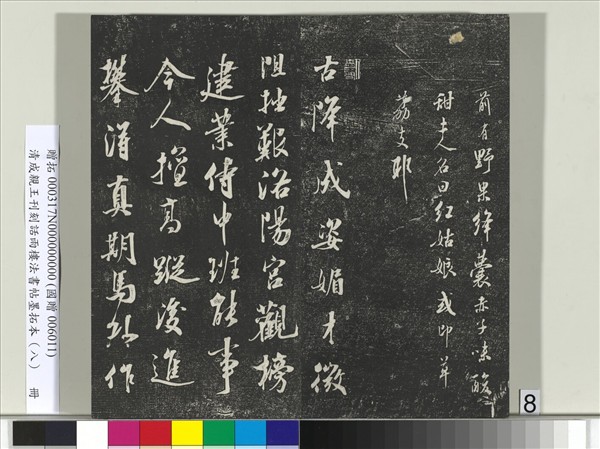 前有野果絳囊赤子味酸
甜夫人名曰紅姑娘或即草
荔支耶
古降成姿媚才微
阻拙艱洛陽宮觀榜
建業侍中班能事
今人擅高蹤後進
攀得真期馬外作
贈拓 000317N000000000 (國贈 006011)
清成親王刊刻話雨樓法書帖墨拓本（八） 冊
8